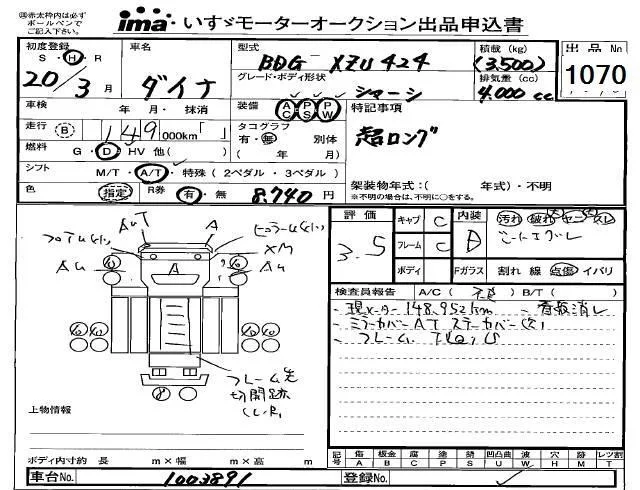 ㊟赤太枠内は必ず
ボールペンで
ご記入下さい。
ima・いすゞモーターオークション出品申込書
初度登録 S・H・R 20/3月
車名 ダイナ
型式 BDG- XZU424
積載 (kg) (3,500)
出品No 1070
グレード・ボディ形状 シャーシ
排気量 (cc) 4,000 cc
車検 年 月・抹消
装備 AC PS PW
特記事項
超ロング
走行 (B) 149 000km「 」
タコグラフ 有・無 別体 ( 年 月)
燃料 G・D・HV 他( )
シフト M/T・A/T・特殊(2ペダル・3ペダル)
架装物年式:( 年式)・不明
※不明の場合は、不明に○をする。
色 指定 R券 有・無 8,740 円
評価 3.5
キャブ C
フレーム C
ボディ
内装 D
汚れ 破れ ヤニ スレ
Fガラス 割れ 線 点傷 イバリ
AUT A
XM
AU A AU
フレーム先
切開跡
(L.R)
検査員報告 A/C( ) B/T( )
- 現メーター 148,952km - 看板消し
- ミラーカバーAT ステーカバー欠
- フレーム、
上物情報
ボディ内寸約 長 m×幅 m×高 m
記号 傷A 板金B 腐C 塗P 錆S 凹凸曲U 波W 穴H 跡M レツ割T
車台No. 1003891
登録No.